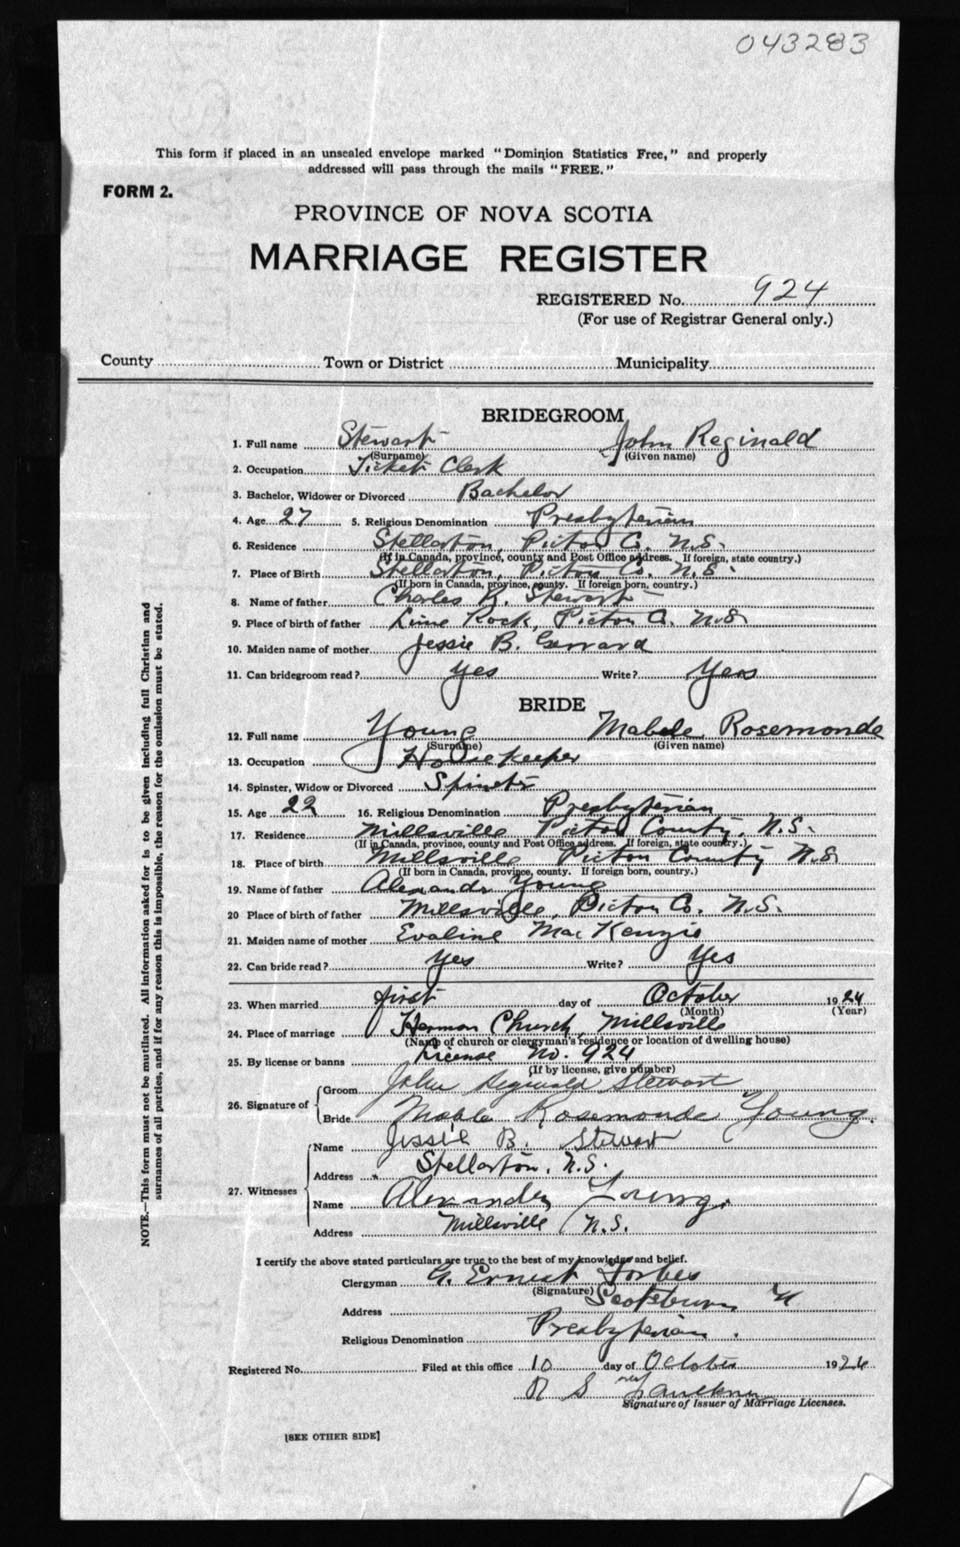 043283
This form if placed in an unsealed envelope marked "Dominion Statistics Free," and properly
addressed will pass through the mails "FREE."
FORM 2.
PROVINCE OF NOVA SCOTIA
MARRIAGE REGISTER
REGISTERED No. 924
(For use of Registrar General only.)
County Town or District Municipality
BRIDEGROOM
1. Full name Stewart John Reginald
(Surname) (Given name)
2. Occupation Ticket Clerk
3. Bachelor, Widower or Divorced Bachelor
4. Age 27 5. Religious Denomination Presbyterian
6. Residence Stellarton, Pictou Co. N.S.
(If in Canada, province, county and Post Office address. If foreign, state country.)
7. Place of Birth Stellarton, Pictou Co. N.S.
(If born in Canada, province, county. If foreign born, country.)
8. Name of father Charles R. Stewart
9. Place of birth of father Lime Rock, Pictou Co. N.S.
10. Maiden name of mother Jessie B. Gerrard
11. Can bridegroom read? Yes Write? Yes
BRIDE
12. Full name Young Mabele Rosemonde
(Surname) (Given name)
13. Occupation Housekeeper
14. Spinster, Widow or Divorced Spinster
15. Age 22 16. Religious Denomination Presbyterian
17. Residence Millsville Pictou County, N.S.
(If in Canada, province, county and Post Office address. If foreign, state country.)
18. Place of birth Millsville Pictou County N.S
(If born in Canada, province, county. If foreign born, country.)
19. Name of father Alexander Young
20 Place of birth of father Millsville, Pictou Co. N.S.
21. Maiden name of mother Evaline MacKenzie
22. Can bride read? Yes Write? Yes
23. When married first day of October 1924
(Month) (Year)
24. Place of marriage Hermon Church, Millsville
(Name of church or clergyman's residence or location of dwelling house)
25. By license or banns License No. 924
(If by license, give number)
26. Signature of
Groom John Reginald Stewart
Bride Mable Rosemonde Young
27. Witnesses
Name Jessie B. Stewart
Address Stellarton, N.S.
Name Alexander Young.
Address Millsville N.S.
I certify the above stated particulars are true to the best of my knowledge and belief.
Clergyman G. Ernest Forbes
(Signature)
Address Scotsburn
Religious Denomination Presbyterian.
Registered No. Filed at this office 10 day of October 1924
R S Faulkner
Signature of Issuer of Marriage Licenses.
[SEE OTHER SIDE]
NOTE.—This form must not be mutilated. All information asked for is to be given including full Christian and
surnames of all parties, and if for any reason this is impossible, the reason for the omission must be stated.